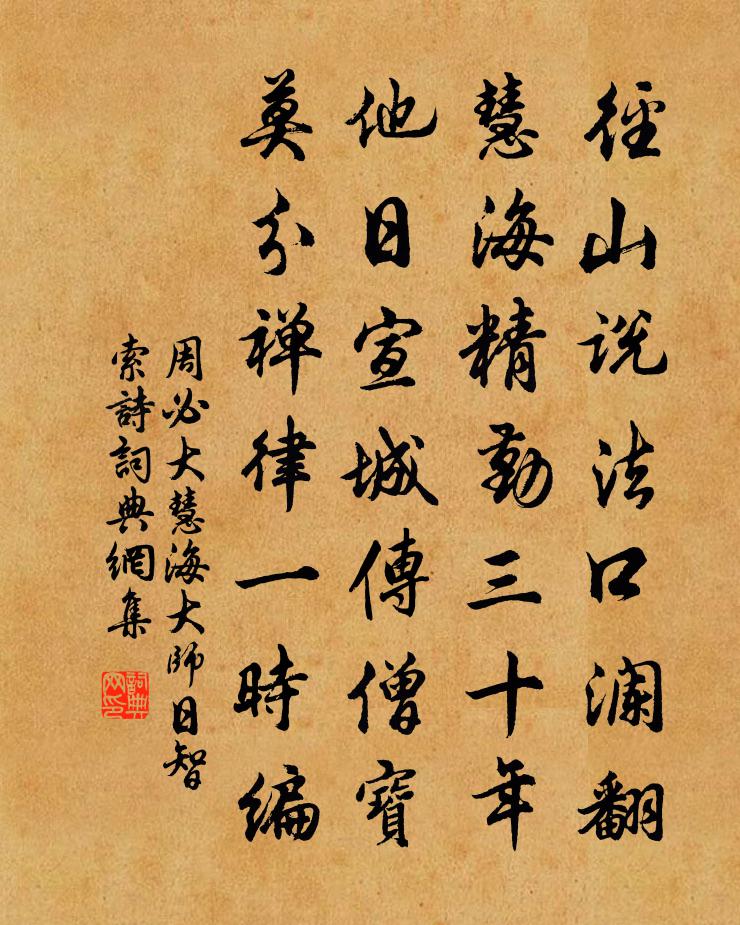 徑山説法口瀾翻
慧海精勤三十年
他日宣城傳僧寶
莫分禅律一時編
周必大慧海大師日智
索詩詞典網集
詞典网印